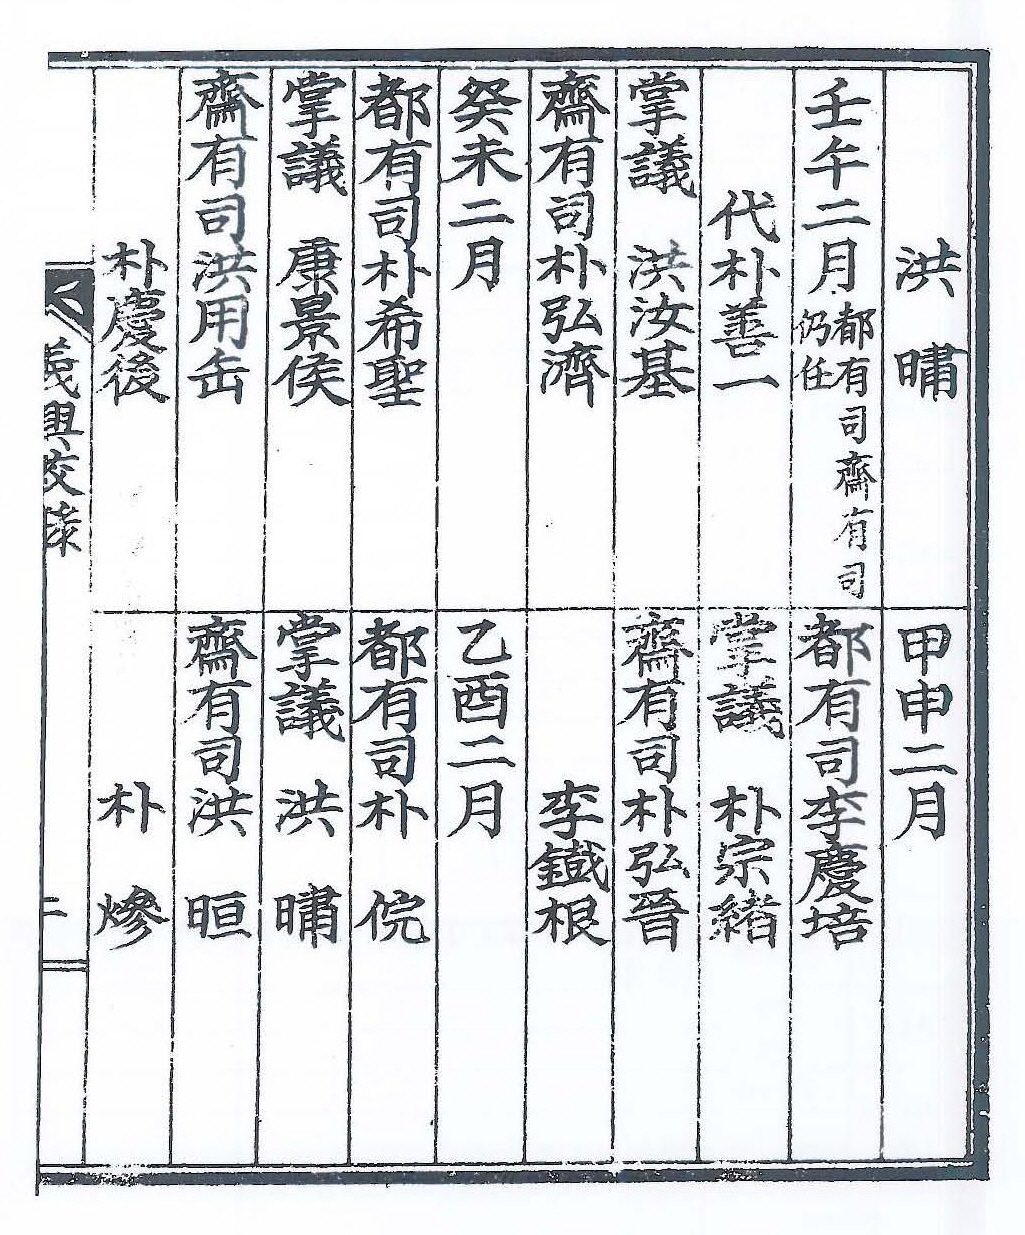 洪　嘯
壬午二月 都有司齋有司
仍任
代朴善一
掌議　洪汝基
齋有司朴弘濟
癸未二月
都有司朴希聖
掌議　康景侯
齋有司洪用缶
朴慶後
甲申二月
都有司李慶培
掌議　朴宗緒
齋有司朴弘晉
李鐵根
乙酉二月
都有司朴　俒
掌議　洪　嘯
齋有司洪　晅
朴
義興校錄
二